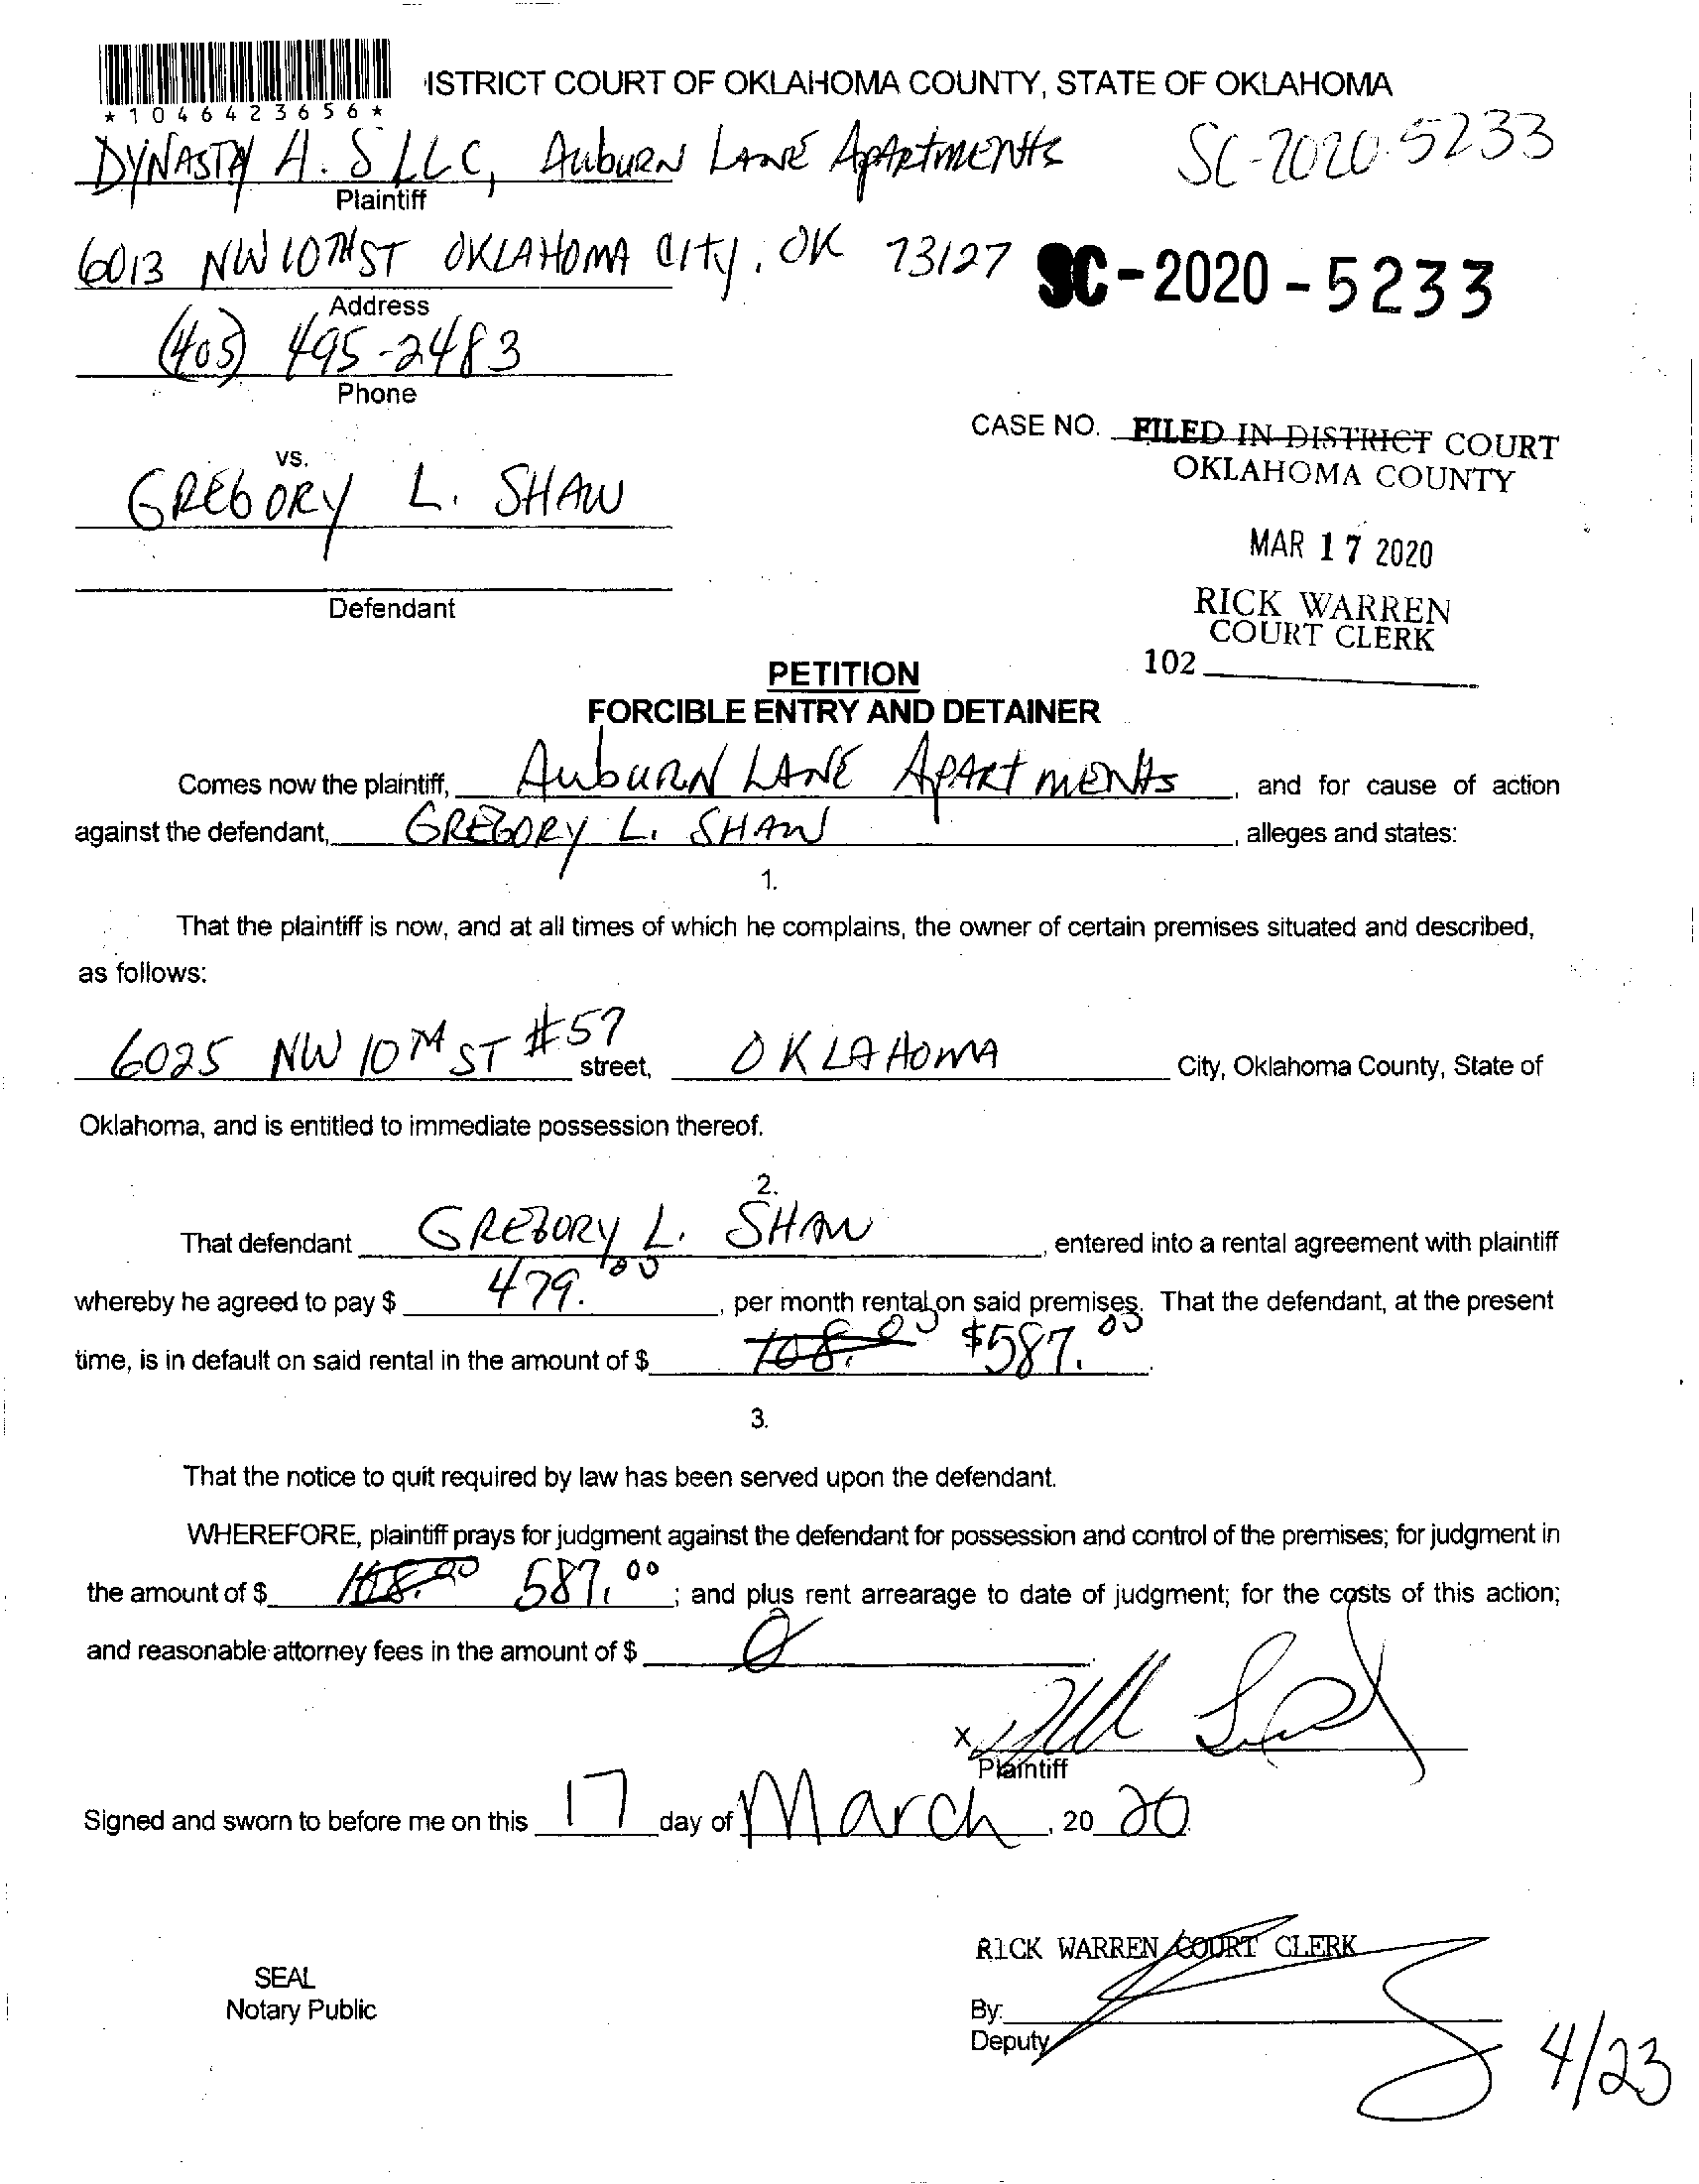 ISTRICT COURT OF OKLAHOMA COUNTY, STATE OF OKLAHOMA
*1046423656*
DYNASTY A. S LLC, AUBURN LANE APARTMENTS SC-2020-5233
Plaintiff
6013 NW 10TH ST OKLAHOMA CITY, OK 73127 SC-2020-5233
Address
(405) 495-2483
Phone
CASE NO. FILED IN DISTRICT COURT
OKLAHOMA COUNTY
vs.
GREGORY L. SHAW
MAR 17 2020
Defendant
RICK WARREN
COURT CLERK
102
PETITION
FORCIBLE ENTRY AND DETAINER
Comes now the plaintiff, AUBURN LANE APARTMENTS, and for cause of action
against the defendant, GREGORY L. SHAW, alleges and states:
1.
That the plaintiff is now, and at all times of which he complains, the owner of certain premises situated and described,
as follows:
6025 NW 10TH ST #57 street, OKLAHOMA City, Oklahoma County, State of
Oklahoma, and is entitled to immediate possession thereof.
2.
That defendant GREGORY L. SHAW, entered into a rental agreement with plaintiff
whereby he agreed to pay $ 479.00, per month rental on said premises. That the defendant, at the present
time, is in default on said rental in the amount of $ 108.00 $587.00.
3.
That the notice to quit required by law has been served upon the defendant.
WHEREFORE, plaintiff prays for judgment against the defendant for possession and control of the premises; for judgment in
the amount of $ 108.00 587.00; and plus rent arrearage to date of judgment; for the costs of this action;
and reasonable attorney fees in the amount of $ 0.
X
Plaintiff
Signed and sworn to before me on this 17 day of March, 20 20.
RICK WARREN COURT CLERK
SEAL
Notary Public
By:
Deputy
4/23